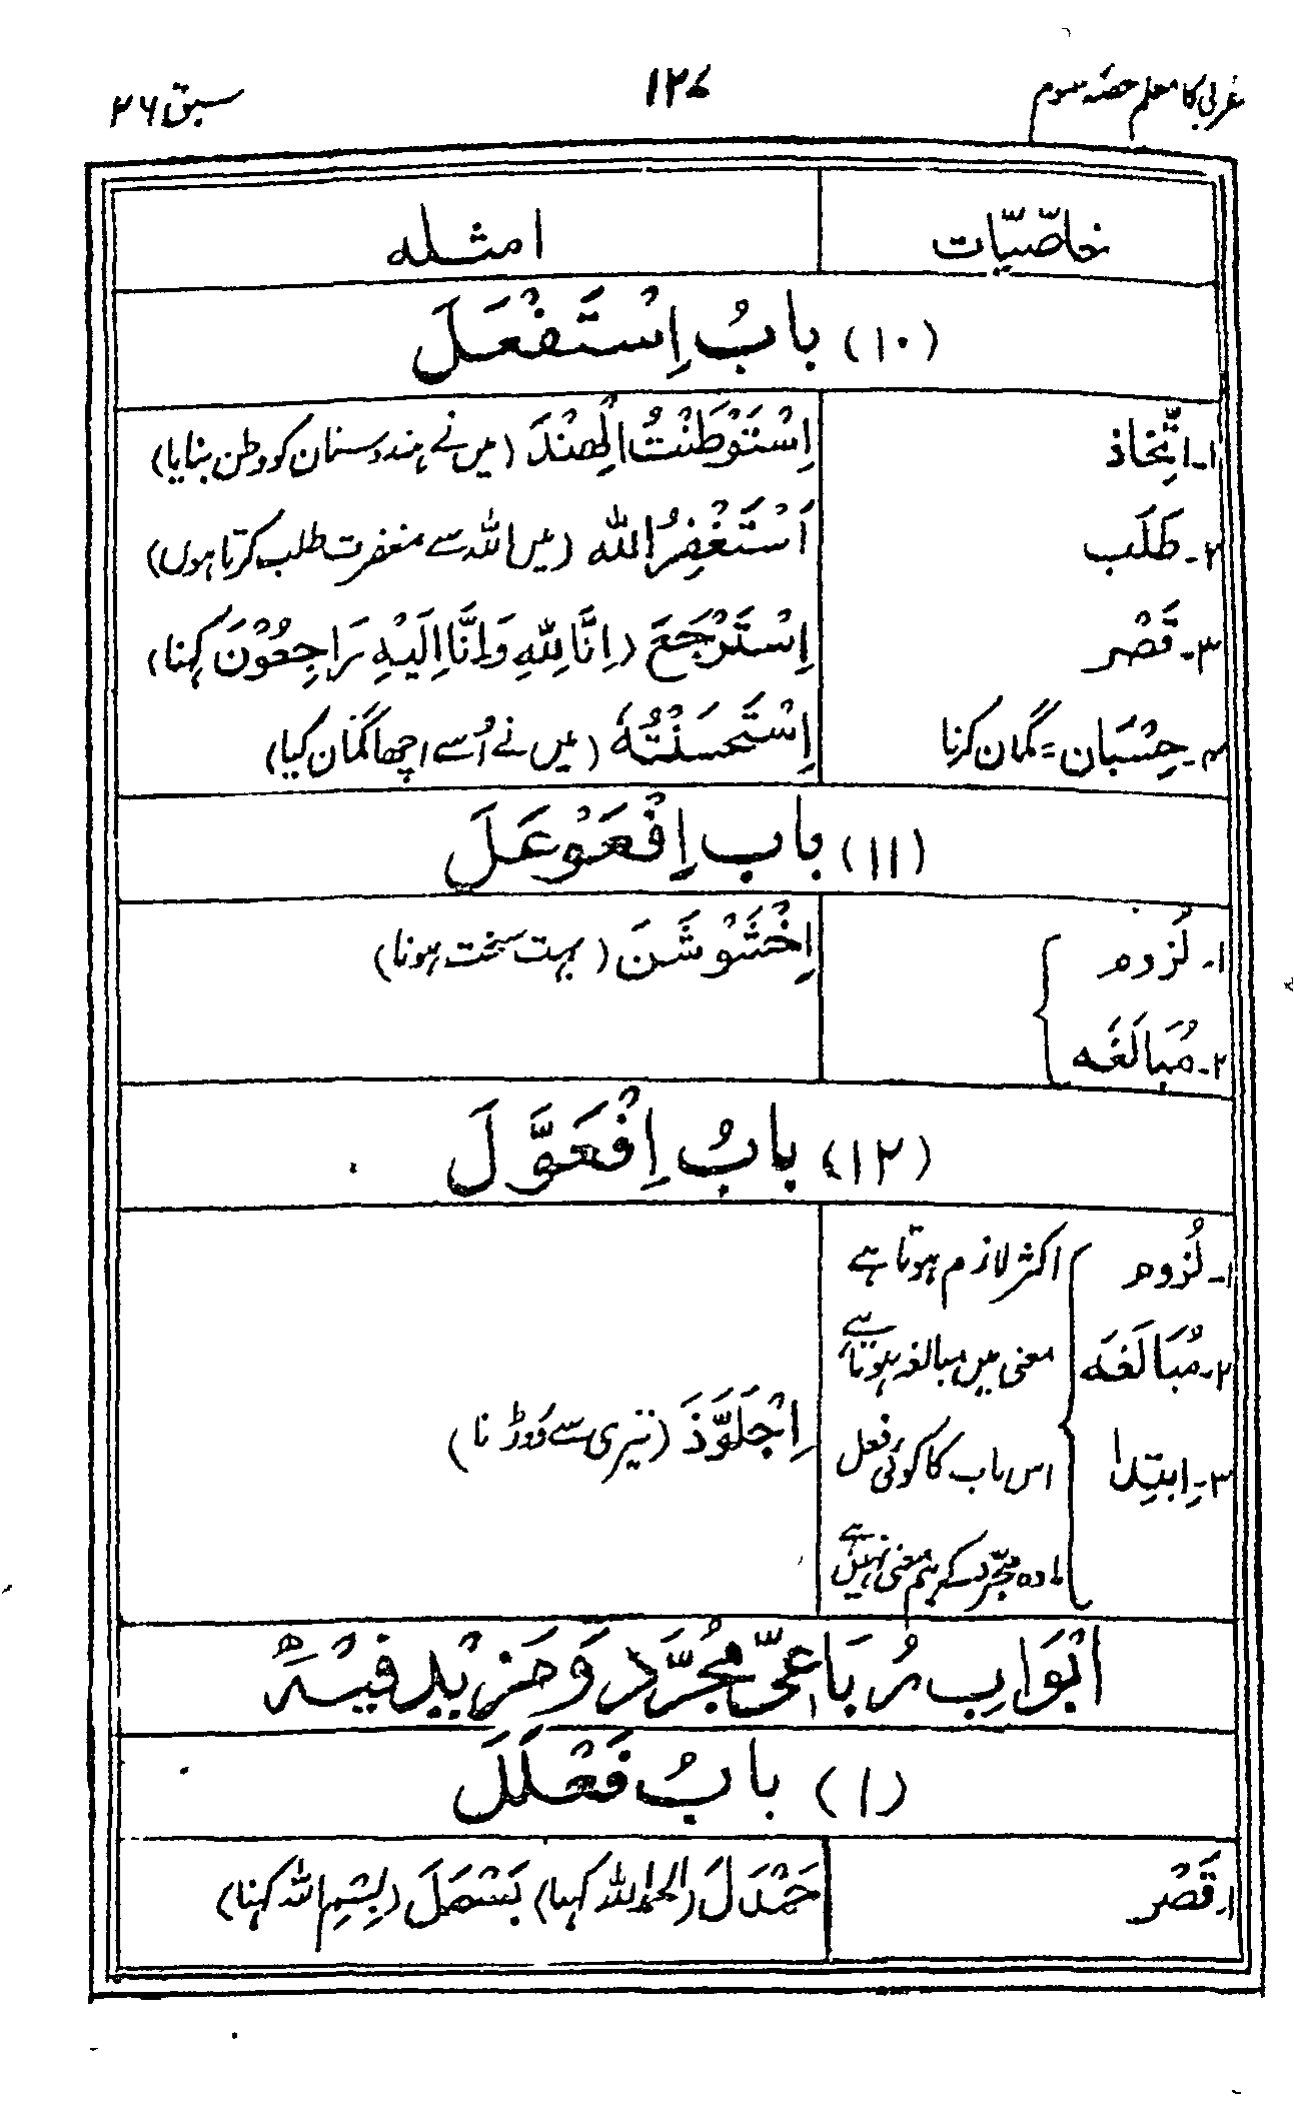 عربی کا معلم حصہ سوم ۱۲۷ سبق ۲۶
خاصّیّات امثلہ
(۱۰) بابُ اِسْتَفْعَلَ
۱۔ اتِّخاذ اِسْتَوْطَنْتُ الْھِنْدَ (میں نے ہندوستان کو وطن بنایا)
۲۔ طَلَب اَسْتَغْفِرُ اللّٰہ (میں اللہ سے مغفرت طلب کرتا ہوں)
۳۔ قَصْر اِسْتَرْجَعَ (اِنَّا لِلّٰہِ وَاِنَّا اِلَیْہِ رَاجِعُوْنَ کہنا)
۴۔ حِسْبَان = گمان کرنا اِسْتَحسَنْتُہٗ (میں نے اُسے اچھا گمان کیا)
(۱۱) باب اِفْعَوْعَلَ
۱۔ لُزوم اِخْشَوْشَنَ (بہت سخت ہونا)
۲۔ مُبَالَغَہ
(۱۲) بابُ اِفْعَوَّلَ
۱۔ لُزوم اکثر لازم ہوتا ہے
۲۔ مُبَالَغَہ معنی میں مبالغہ ہوتا ہے
اِجْلَوَّذَ (تیزی سے دوڑنا)
۳۔ اِبتِدا اس باب کا کوئی فعل
مادہ مجرّد کے ہم معنی نہیں ہے
اَبْوَاب رُبَاعِیّ مُجَرَّد وَ مَزِیْد فِیْہ
(۱) بابُ فَعْلَلَ
۱۔ قَصْر حَمْدَلَ (الحمد للہ کہنا) بَسْمَلَ (بِسْمِ اللہ کہنا)